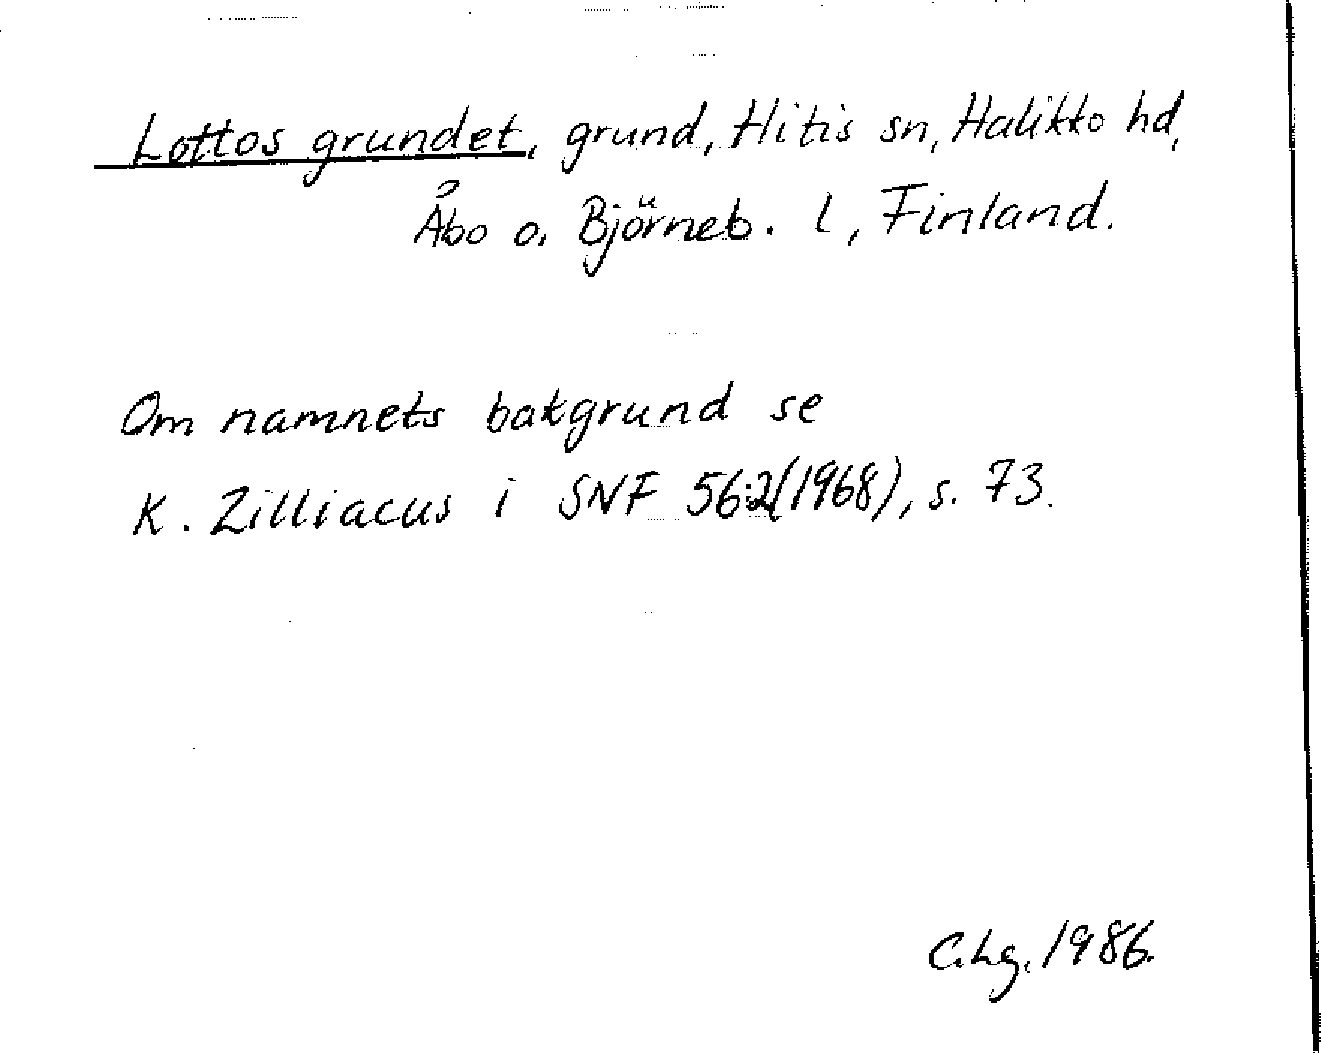 Lottos grundet, grund, Hitis sn, Halikko hd,
Åbo o. Björneb. l, Finland.
Om namnets bakgrund se
K. Zilliacus i SNF 56:2(1968), s. 73.
C.Lg. 1986.